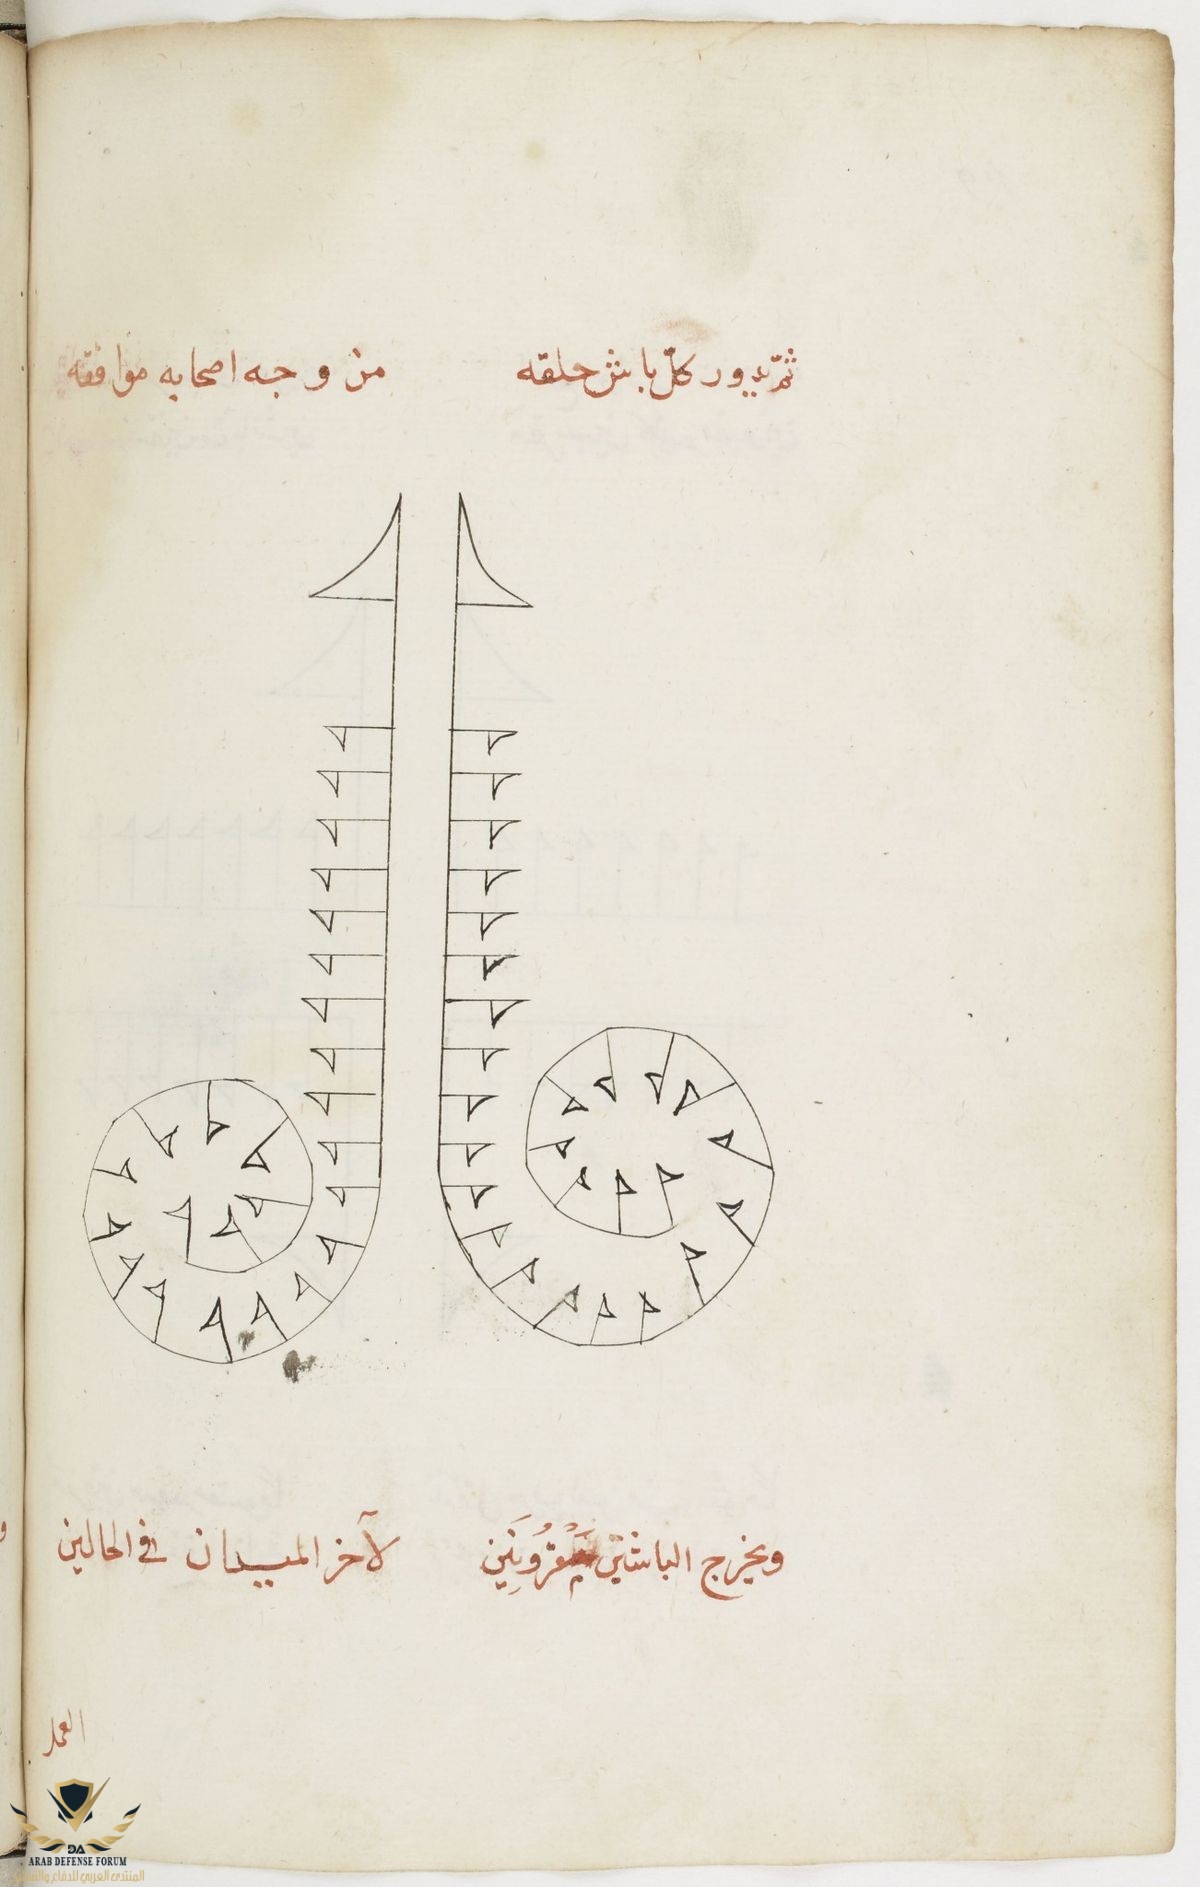 ثمّ يدور كلّ باش حلقه من وجه اصحابه موافقه
ويخرج الباشين مقرونين لآخر الميدان في الحالين
العمل
ARAB DEFENSE FORUM
المنتدى العربي للدفاع والتسليح